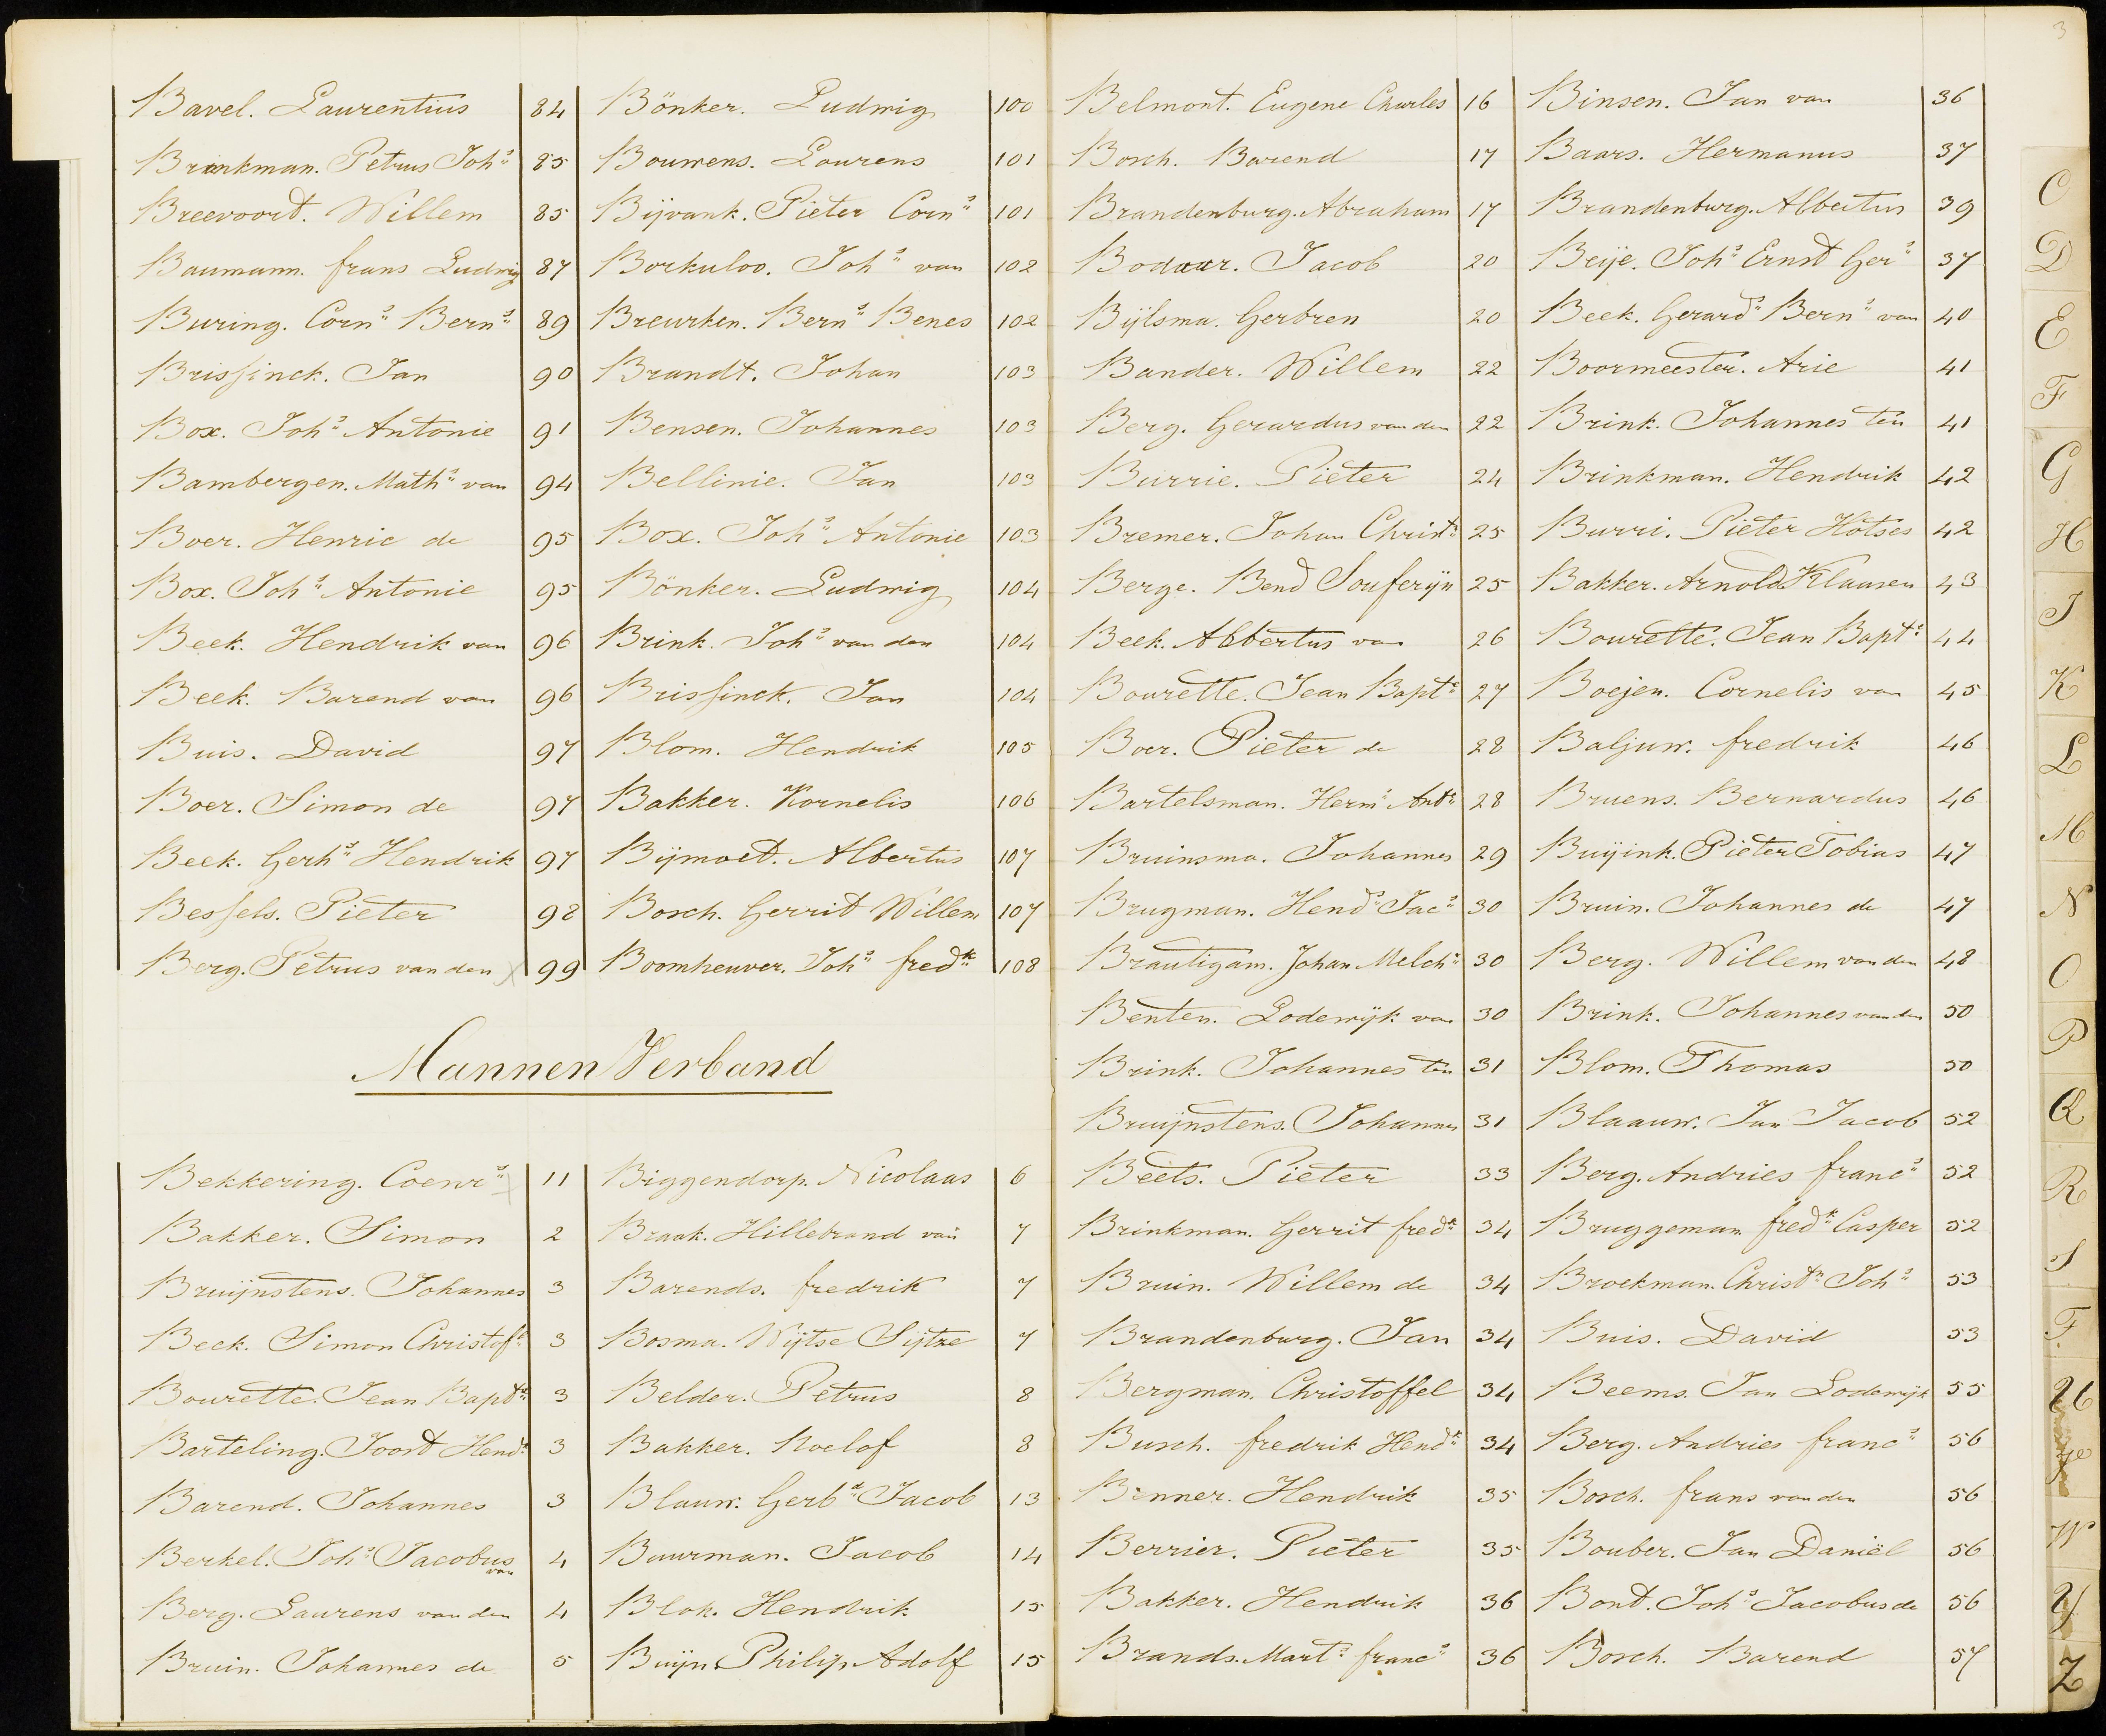 3
Bavel. Laurentius 84
Brinkman. Petrus Johs 85
Breevoort. Willem 85
Baumann. frans Ludwig 87
Buring. Corns Berns 89
Brissinck. Jan 90
Box. Johs Antonie 91
Bambergen. Maths van 94
Boer. Henric de 95
Box. Johs Antonie 95
Beek. Hendrik van 96
Beek. Barend van 96
Buis. David 97
Boer. Simon de 97
Beek. Gerhs Hendrik 97
Bessels. Pieter 98
Berg. Petrus van den 99
Bönker. Ludwig 100
Bouwens. Lourens 101
Bijvank. Pieter Corns 101
Borkuloo. Johs van 102
Breurken. Berns Benes 102
Brandt. Johan 103
Bensen. Johannes 103
Bellinie. Jan 103
Box. Johs Antonie 103
Bönker. Ludwig 104
Brink. Johs van den 104
Brissinck. Jan 104
Blom. Hendrik 105
Bakker. Kornelis 106
Bijmoet. Albertus 107
Bosch. Gerrit Willem 107
Boomheuver. Johs fredk 108
Mannen Verband
Bekkering. Coenrs 11
Bakker. Simon 2
Bruijnstens. Johannes 3
Beek. Simon Christofs 3
Bourette. Jean Bapte 3
Barteling. Joost Hendk 3
Barend. Johannes 3
Berkel. Johs Jacobus van 4
Berg. Laurens van den 4
Bruin. Johannes de 5
Biggendorp. Nicolaas 6
Braak. Hillebrand van 7
Barends. fredrik 7
Bosma. Wijtse Sijtze 7
Belder. Petrus 8
Bakker. Roelof 8
Blauw. Gerbt Jacob 13
Buurman. Jacob 14
Blok. Hendrik 15
Buijn Philip Adolf 15
Belmont. Eugene Charles 16
Bosch. Barend 17
Brandenburg. Abraham 17
Bodaar. Jacob 20
Bijlsma. Gerbren 20
Bander. Willem 22
Berg. Gerardus van den 22
Burrie. Pieter 24
Bremer. Johan Christn 25
Berge. Bend Souferijn 25
Beek. Albertus van 26
Bourette. Jean Bapte 27
Boer. Pieter de 28
Bartelsman. Herms Ants 28
Bruinsma. Johannes 29
Brugman. Hends Jacs 30
Brautigam. Johan Melchs 30
Benten. Lodewijk van 30
Brink. Johannes ten 31
Bruijnstens. Johannes 31
Beets. Pieter 33
Brinkman. Gerrit fredk 34
Bruin. Willem de 34
Brandenburg. Jan 34
Bergman. Christoffel 34
Busch. fredrik Hendk 34
Binner. Hendrik 35
Berrier. Pieter 35
Bakker. Hendrik 36
Brands. Marts francs 36
Binsen. Jan van 36
Baars. Hermanus 37
Brandenburg. Albertus 39
Beije. Johs Ernst Gers 37
Beek. Gerards Berns van 40
Boormeester. Arie 41
Brink. Johannes ten 41
Brinkman. Hendrik 42
Burri. Pieter Hotses 42
Bakker. Arnold Klaasen 43
Bourette. Jean Bapte 44
Boejen. Cornelis van 45
Baljuw. fredrik 46
Bruens. Bernardus 46
Buijink. Pieter Tobias 47
Bruin. Johannes de 47
Berg. Willem van den 48
Brink. Johannes van den 50
Blom. Thomas 50
Blaauw. Jan Jacob 52
Berg. Andries francs 52
Bruggeman fredk Casper 52
Broekman. Christn Johs 53
Buis. David 53
Beems. Jan Lodewijk 55
Berg. Andries francs 56
Bosch. frans van den 56
Bouber. Jan Daniël 56
Bont. Johs Jacobus de 56
Bosch. Barend 57
C
D
E
F
G
H
I
K
L
M
N
O
P
Q
R
S
T
U
V
W
Y
Z